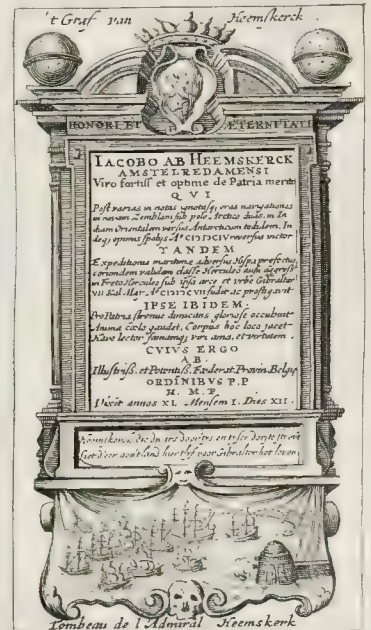 't Graf van Heemskerck.
HONORI ET ÆTERNITATI
IACOBO AB HEEMSKERCK
AMSTELREDAMENSI
Viro fortiss et optime de Patria merito
QVI
Post varias in notas ignotasq; oras navigationes
in novam Zemblam sub polo Arctico duas, in In
diam Orientalem versus Antarcticum totidem, In
deq; opimis spolijs Aº reversus victor
TANDEM
Expeditionis maritimæ adversus Hisp. præfectus,
eorundem validam classe Herculeo ausu aggress
in Freto Herculeo sub ipsa arce et urbe Gibraltar
VII Kal. Maÿ. Aº fudit ac profligavit
IPSE IBIDEM,
Pro Patria strenue dimicans gloriose occubuit
Anima cælo gaudet, Corpus hoc loco jacet
Have lector famamq; viri ama, et virtutem.
CVIVS ERGO
AB.
Illustriß. et Potentiß. Fæderat. Provin. Belgic
ORDINIBVS P.P
H. M. P.
Vixit annos XL. Mensem I. Dies XII.
Heemskerck die dn ers door ys en yser dorste streven
liet d'eer aen't land hier t'lyf voor Gibralter het leven
Tombeau de l'Admiral Heemskerk